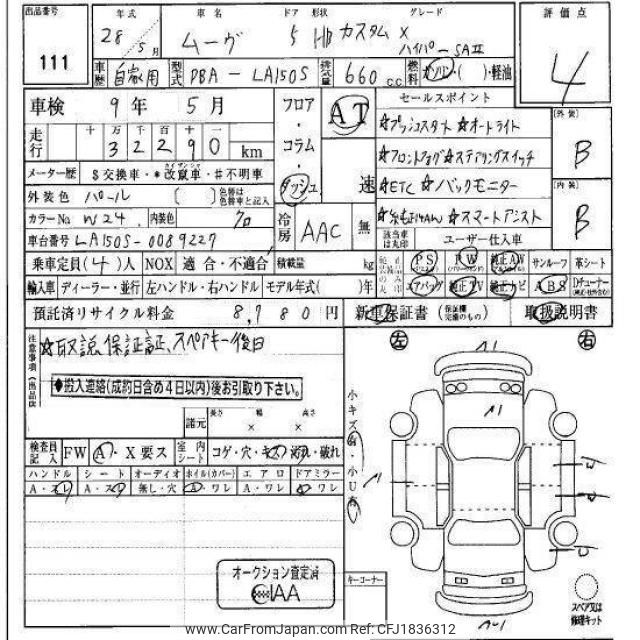 出品番号 111
年式 28年5月
車名 ムーヴ
ドア 形状 5 HB
グレード カスタム X ハイパーSAⅡ
評価点 4
車歴 自家用
型式 DBA-LA150S
排気量 660cc
燃料 ガソリン・( )・軽油
車検 9年 5月
走行 十 万 千 百 十 一
3 2 2 9 0 km
メーター歴 $交換車・*改竄車・#不明車
外装色 パール ( ) 色替は色替車と記入
カラーNo W24 内装色 クロ
車台番号 LA150S-0089227
フロア・コラム・ダッシュ
AT
速
冷房 AAC 無
セールスポイント
☆プッシュスタート ☆オートライト
☆フロントフォグ ☆ステアリングスイッチ
☆ETC ☆バックモニター
☆純正14AW ☆スマートアシスト
外装 B
内装 B
該当車は丸印 ユーザー仕入車
乗車定員(4)人 NOX 適合・不適合 積載量 kg
PS PW 純正AW サンルーフ 革シート
輸入車 ディーラー・並行 左ハンドル・右ハンドル モデル年式( )年
エアバッグ 純正TV 純正ナビ ABS Dチューナー
預託済リサイクル料金 8,780円
新車保証書(保証欄完備のもの) 取扱説明書
注意事項(出品店)
☆取説、保証証、スペアキー後日
◆搬入連絡(成約日含め4日以内)後お引取り下さい。
諸元 長さ 幅 高さ × ×
左 右
検査員記入 FW A・X要ス 室内シート コゲ・穴・キズ・汚れ・破れ
ハンドル シート オーディオ ホイル(カバー) エアロ ドアミラー
A・スレ A・スレ 無し・穴 A・ワレ A・ワレ A・ワレ
小キズ有・小U有
オークション査定済
IAA
キーコーナー
スペア又は修理キット
www.CarFromJapan.com Ref: CFJ1836312